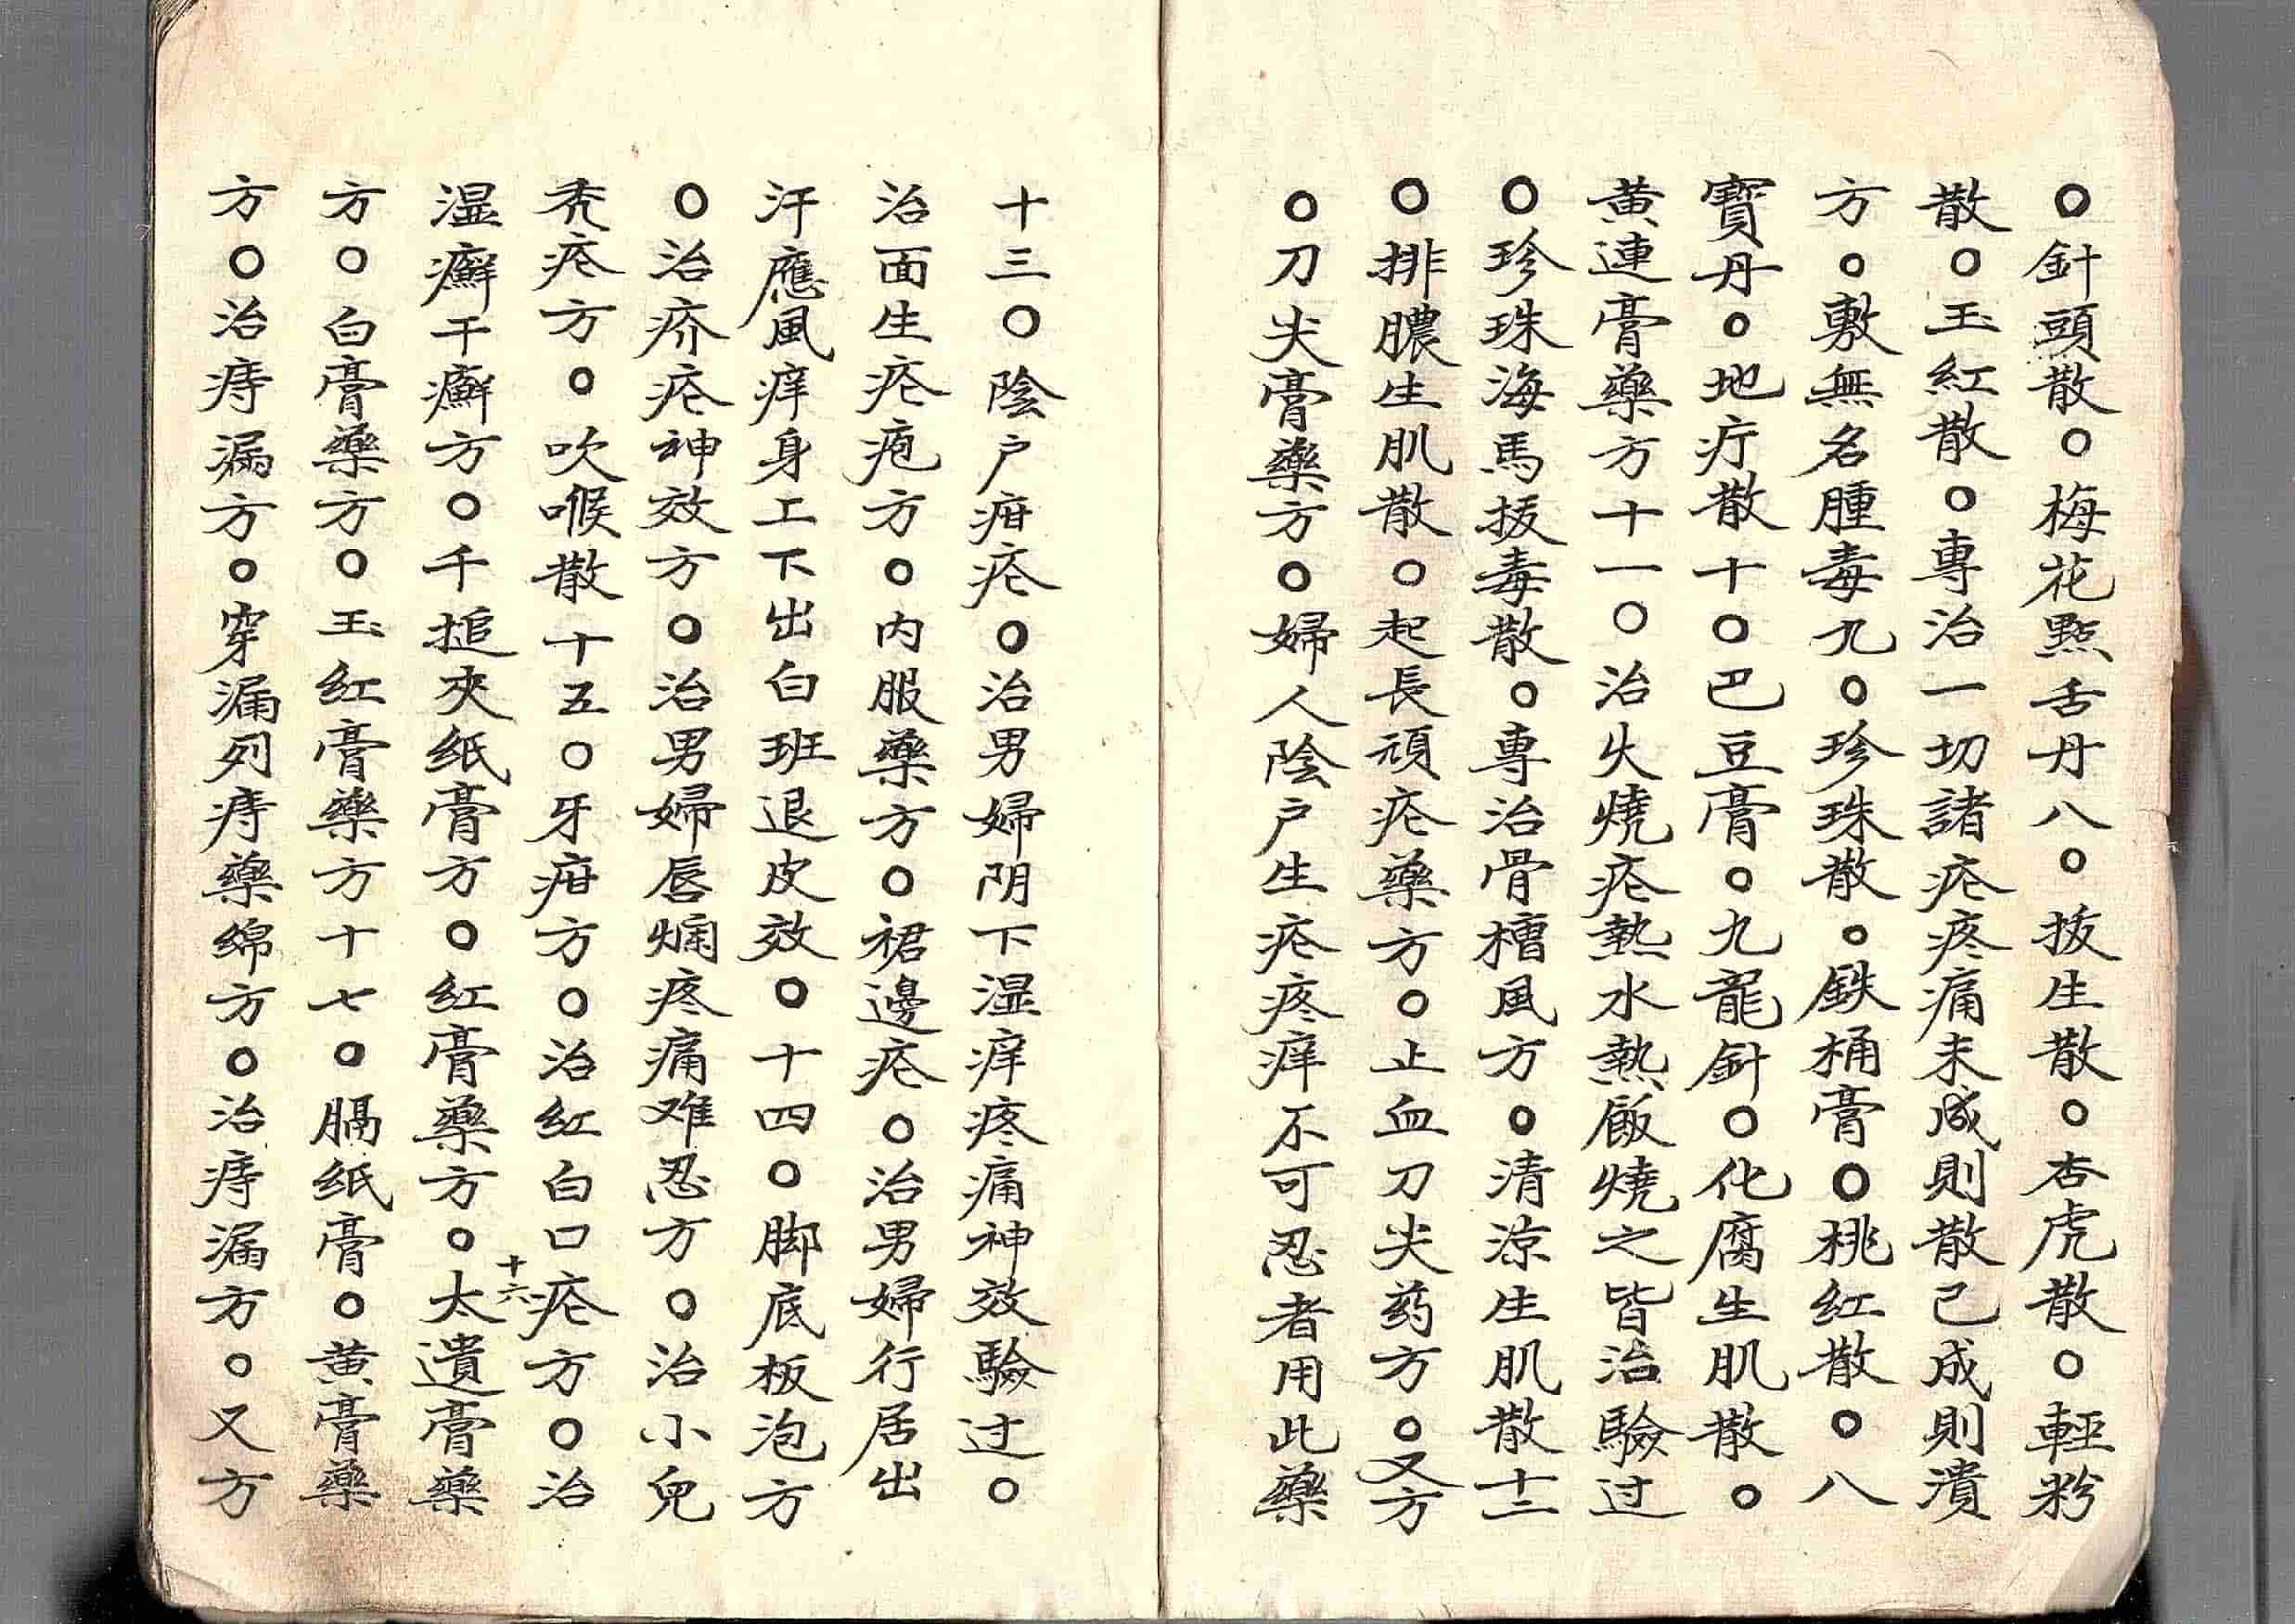 ○針頭散○梅花點舌丹八○拔生散○杏虎散○輕粉
散○玉紅散○專治一切諸疮疼痛未成則散己成則潰
方○敷無名腫毒九○珍珠散○鉄桶膏○桃紅散○八
寶丹○地疔散十○巴豆膏○九龍針○化腐生肌散○
黄連膏藥方十一○治火燒疮熱水熱飯燒之皆治驗过
○珍珠海馬拔毒散○專治骨槽風方○清涼生肌散十二
○排膿生肌散○起長頑疮藥方○止血刀尖药方○又方
○刀尖膏藥方○婦人陰户生疮疼痒不可忍者用此藥
十三○陰户疳疮○治男婦阴下湿痒疼痛神效驗过○
治面生疮疱方○内服藥方○裙邊疮○治男婦行居出
汗應風痒身工下出白班退皮效○十四○脚底板泡方
○治疥疮神效方○治男婦唇爛疼痛难忍方○治小兒
秃疮方○吹喉散十五○牙疳方○治红白口疮方○治
十六
湿癬干癬方○千搥夾纸膏方○红膏藥方○太遺膏藥
方○白膏藥方○玉红膏藥方十七○膈纸膏○黄膏藥
方○治痔漏方○穿漏列痔藥绵方○治痔漏方○又方